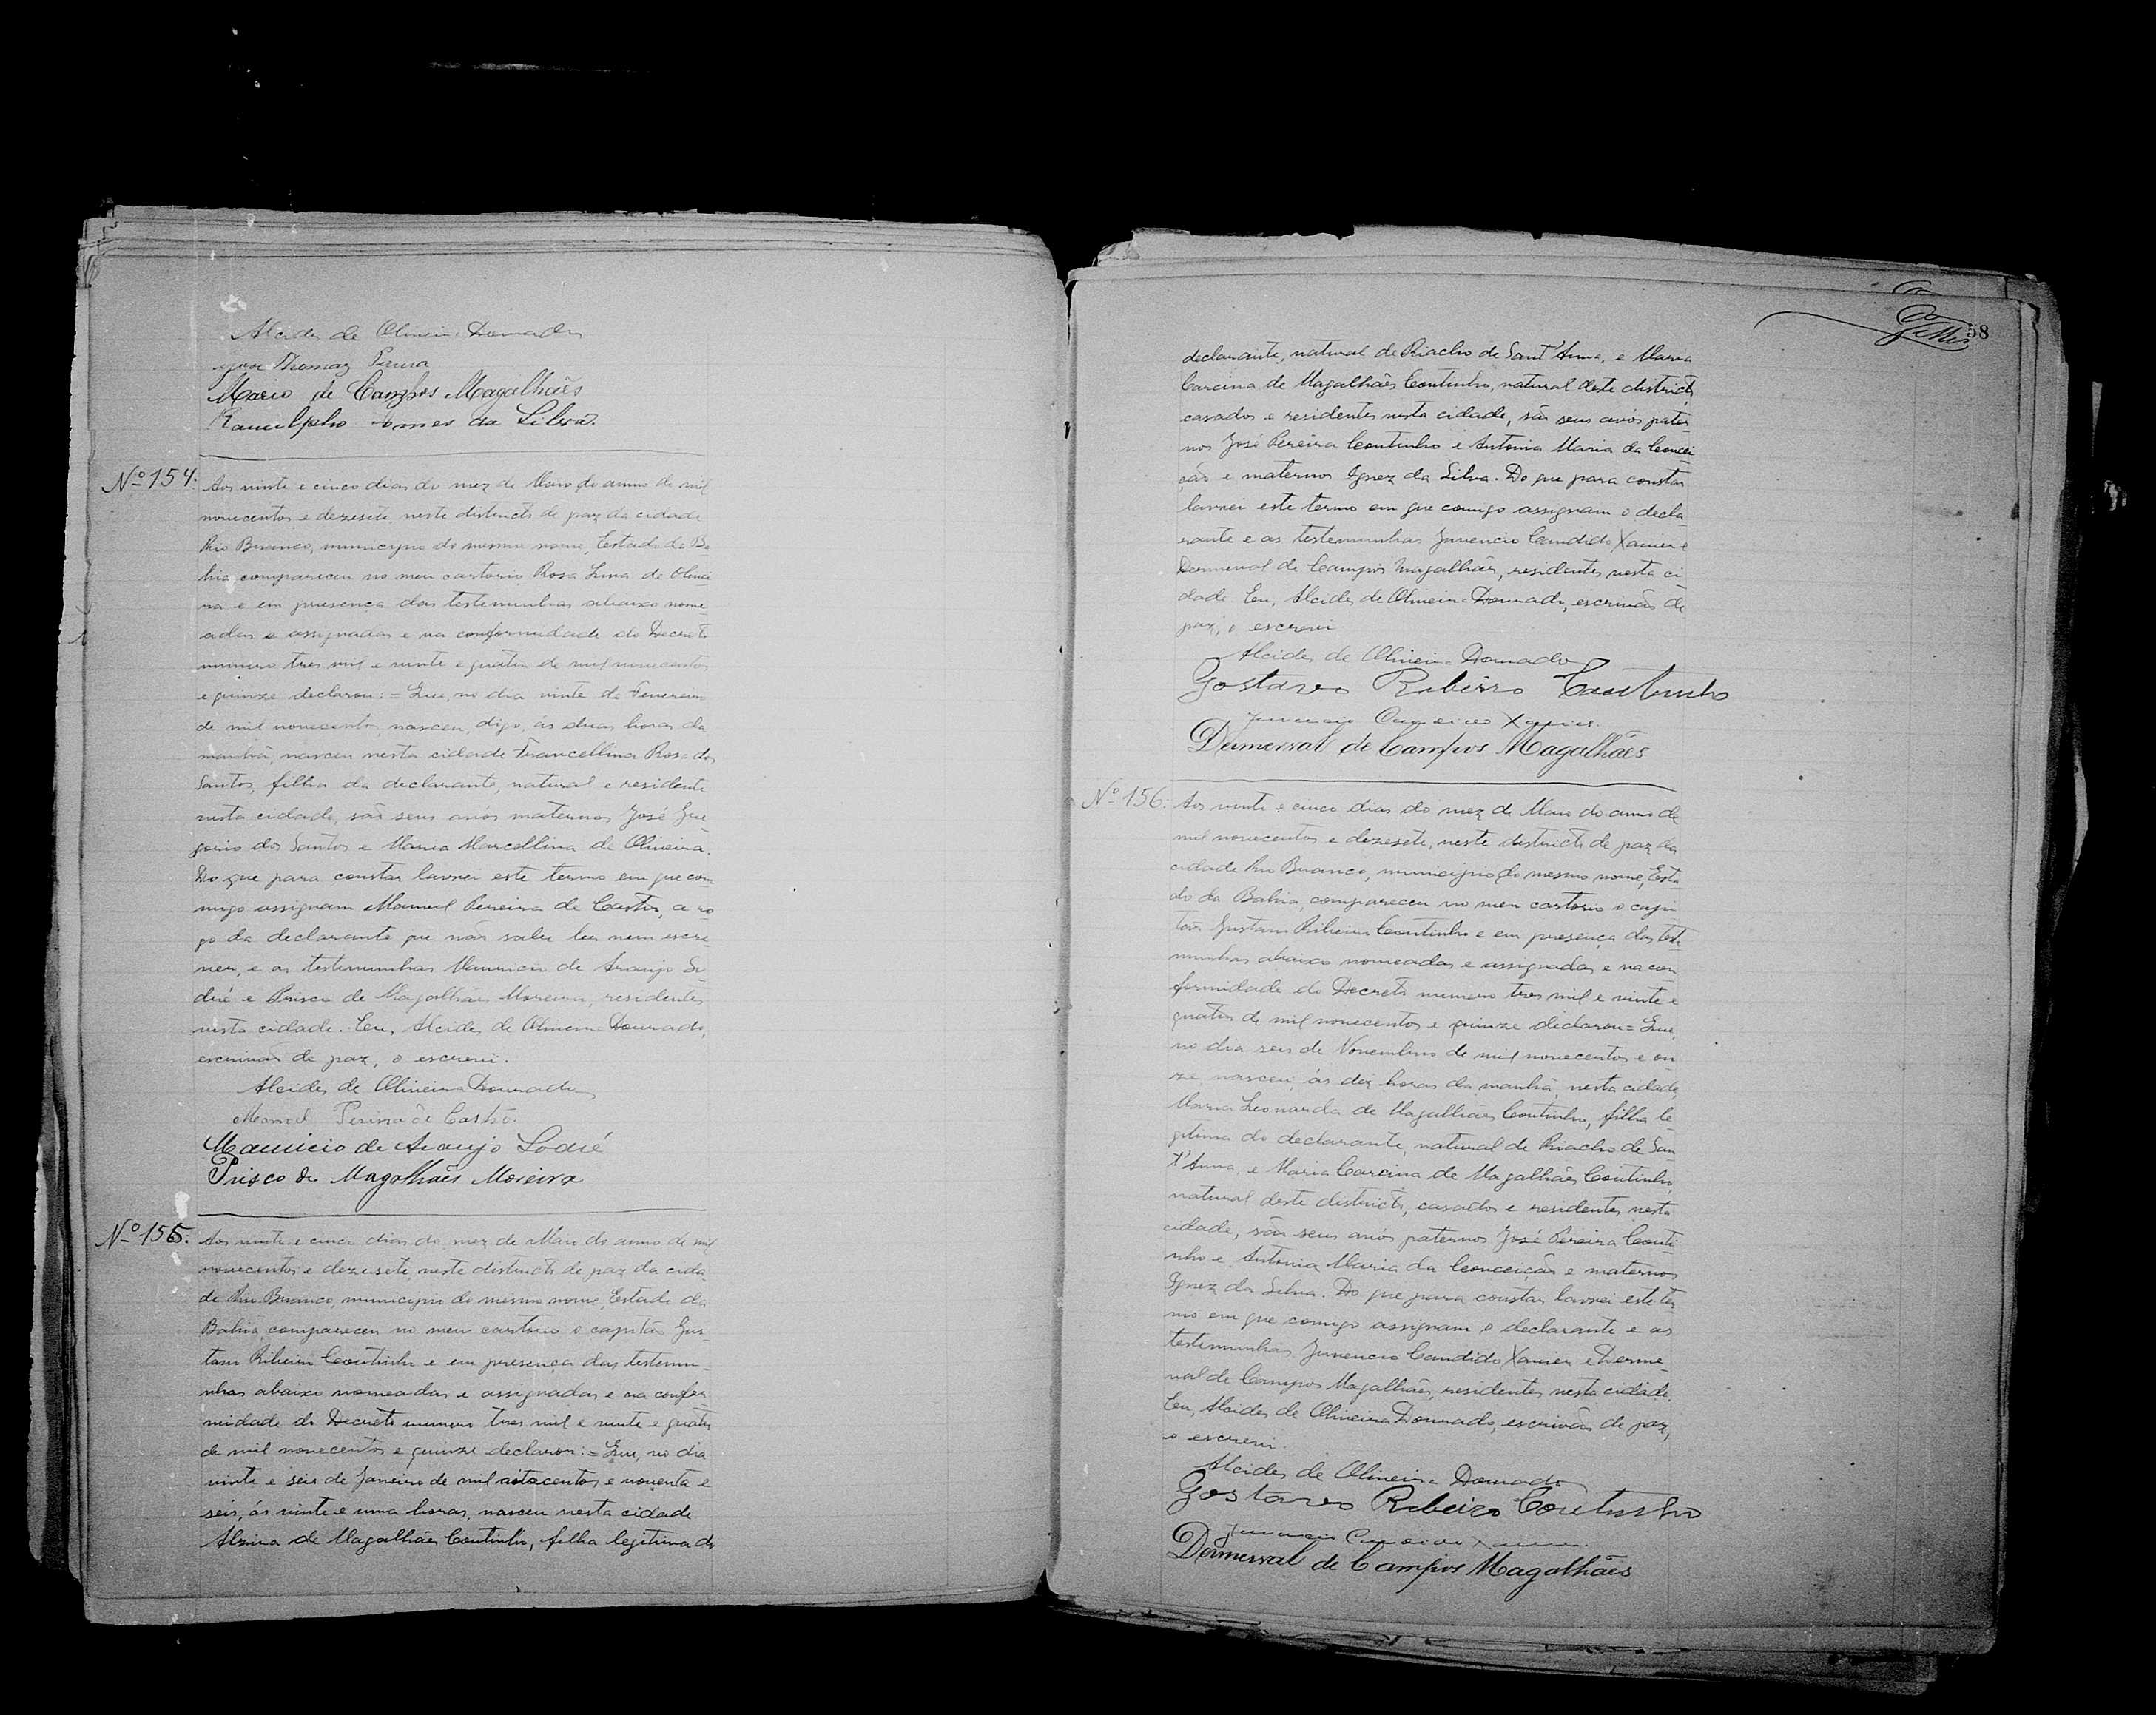 Alcides de Oliveira Dourado
José Thomaz Pereira
Mario de Campos Magalhães
Ranulpho Gomes da Silva.
Nº 154.
Aos vinte e cinco dias do mez de Maio do anno de mil
novecentos e dezesete, neste districto de paz da cidade
Rio Branco, municipio do mesmo nome, Estado da Ba-
hia, compareceu no meu cartorio Rosa Lina de Olivei
ra e em presença das testemunhas abaixo nome
adas e assignadas e na conformidade do Decreto
numero tres mil e vinte e quatro de mil novecentos
e quinze declarou: = Que, no dia vinte de Fevereiro
de mil novecentos, nasceu, digo, ás duas horas da
manhã, nasceu nesta cidade Francellina Rosa dos
Santos, filha da declarante, natural e residente
nesta cidade, são seus avós maternos José Gre
gorio dos Santos e Maria Marcellina de Oliveira.
Do que para constar lavrei este termo em que com
migo assignam Manuel Pereira de Castro, a ro
go da declarante que não sabe ler nem escre
ver, e as testemunhas Mauricio de Araujo So
dré e Prisco de Magalhães Moreira, residentes
nesta cidade. Eu, Alcides de Oliveira Dourado,
escrivão de paz, o escrevi.
Alcides de Oliveira Dourado
Manoel Pereira de Castro.
Mauricio de Araujo Sodré
Prisco de Magalhães Moreira
Nº 155.
Aos vinte e cinco dias do mez de Maio do anno de mil
novecentos e dezesete, neste districto de paz da cida-
de Rio Branco, municipio do mesmo nome, Estado da
Bahia, compareceu no meu cartorio o capitão Gus-
tavo Ribeiro Coutinho e em presença das testemu-
nhas abaixo nomeadas e assignadas e na confor
midade do Decreto numero tres mil e vinte e quatro
de mil novecentos e quinze declarou: = Que, no dia
vinte e seis de Janeiro de mil oitocentos e noventa e
seis, ás vinte e uma horas, nasceu nesta cidade
Alzira de Magalhães Coutinho, filha legitima do
58
declarante, natural de Riacho de Sant'Anna, e Maria
Carcina de Magalhães Coutinho, natural deste districto,
casados e residentes nesta cidade, são seus avós pater
nos José Pereira Coutinho e Antonia Maria da Concei
ção e maternos Ignez da Silva. Do que para constar
lavrei este termo em que comigo assignam o decla
rante e as testemunhas Juvencio Candido Xavier e
Dermeval de Campos Magalhães, residentes nesta ci
dade. Eu, Alcides de Oliveira Dourado, escrivão de
paz, o escrevi
Alcides de Oliveira Dourado
Gostavo Ribeiro Coutinho
Juvencio Candido Xavier.
Dermerval de Campos Magalhães
Nº 156.
Aos vinte e cinco dias do mez de Maio do anno de
mil novecentos e dezesete, neste districto de paz da
cidade Rio Branco, municipio do mesmo nome, Esta
do da Bahia, compareceu no meu cartorio o capi
tão Gustavo Ribeiro Coutinho e em presença das teste
munhas abaixo nomeadas e assignadas e na con
formidade do Decreto numero tres mil e vinte e
quatro de mil novecentos e quinze declarou = Que,
no dia seis de Novembro de mil novecentos e on
ze, nasceu, ás dez horas da manhã, nesta cidade,
Maria Leonarda de Magalhães Coutinho, filha le
gitima do declarante, natural de Riacho de San
t'Anna, e Maria Carcina de Magalhães Coutinho,
natural deste districto, casados e residentes nesta
cidade, são seus avós paternos José Pereira Couti
nho e Antonia Maria da Conceição e maternos
Ignez da Silva. Do que para constar lavrei este ter
mo em que comigo assignam o declarante e as
testemunhas Juvencio Candido Xavier e Derme-
val de Campos Magalhães, residentes nesta cidade.
Eu, Alcides de Oliveira Dourado, escrivão de paz,
o escrevi.
Alcides de Oliveira Dourado
Gostavo Ribeiro Coutinho
Juvencio Candido Xavier.
Dermerval de Campos Magalhães